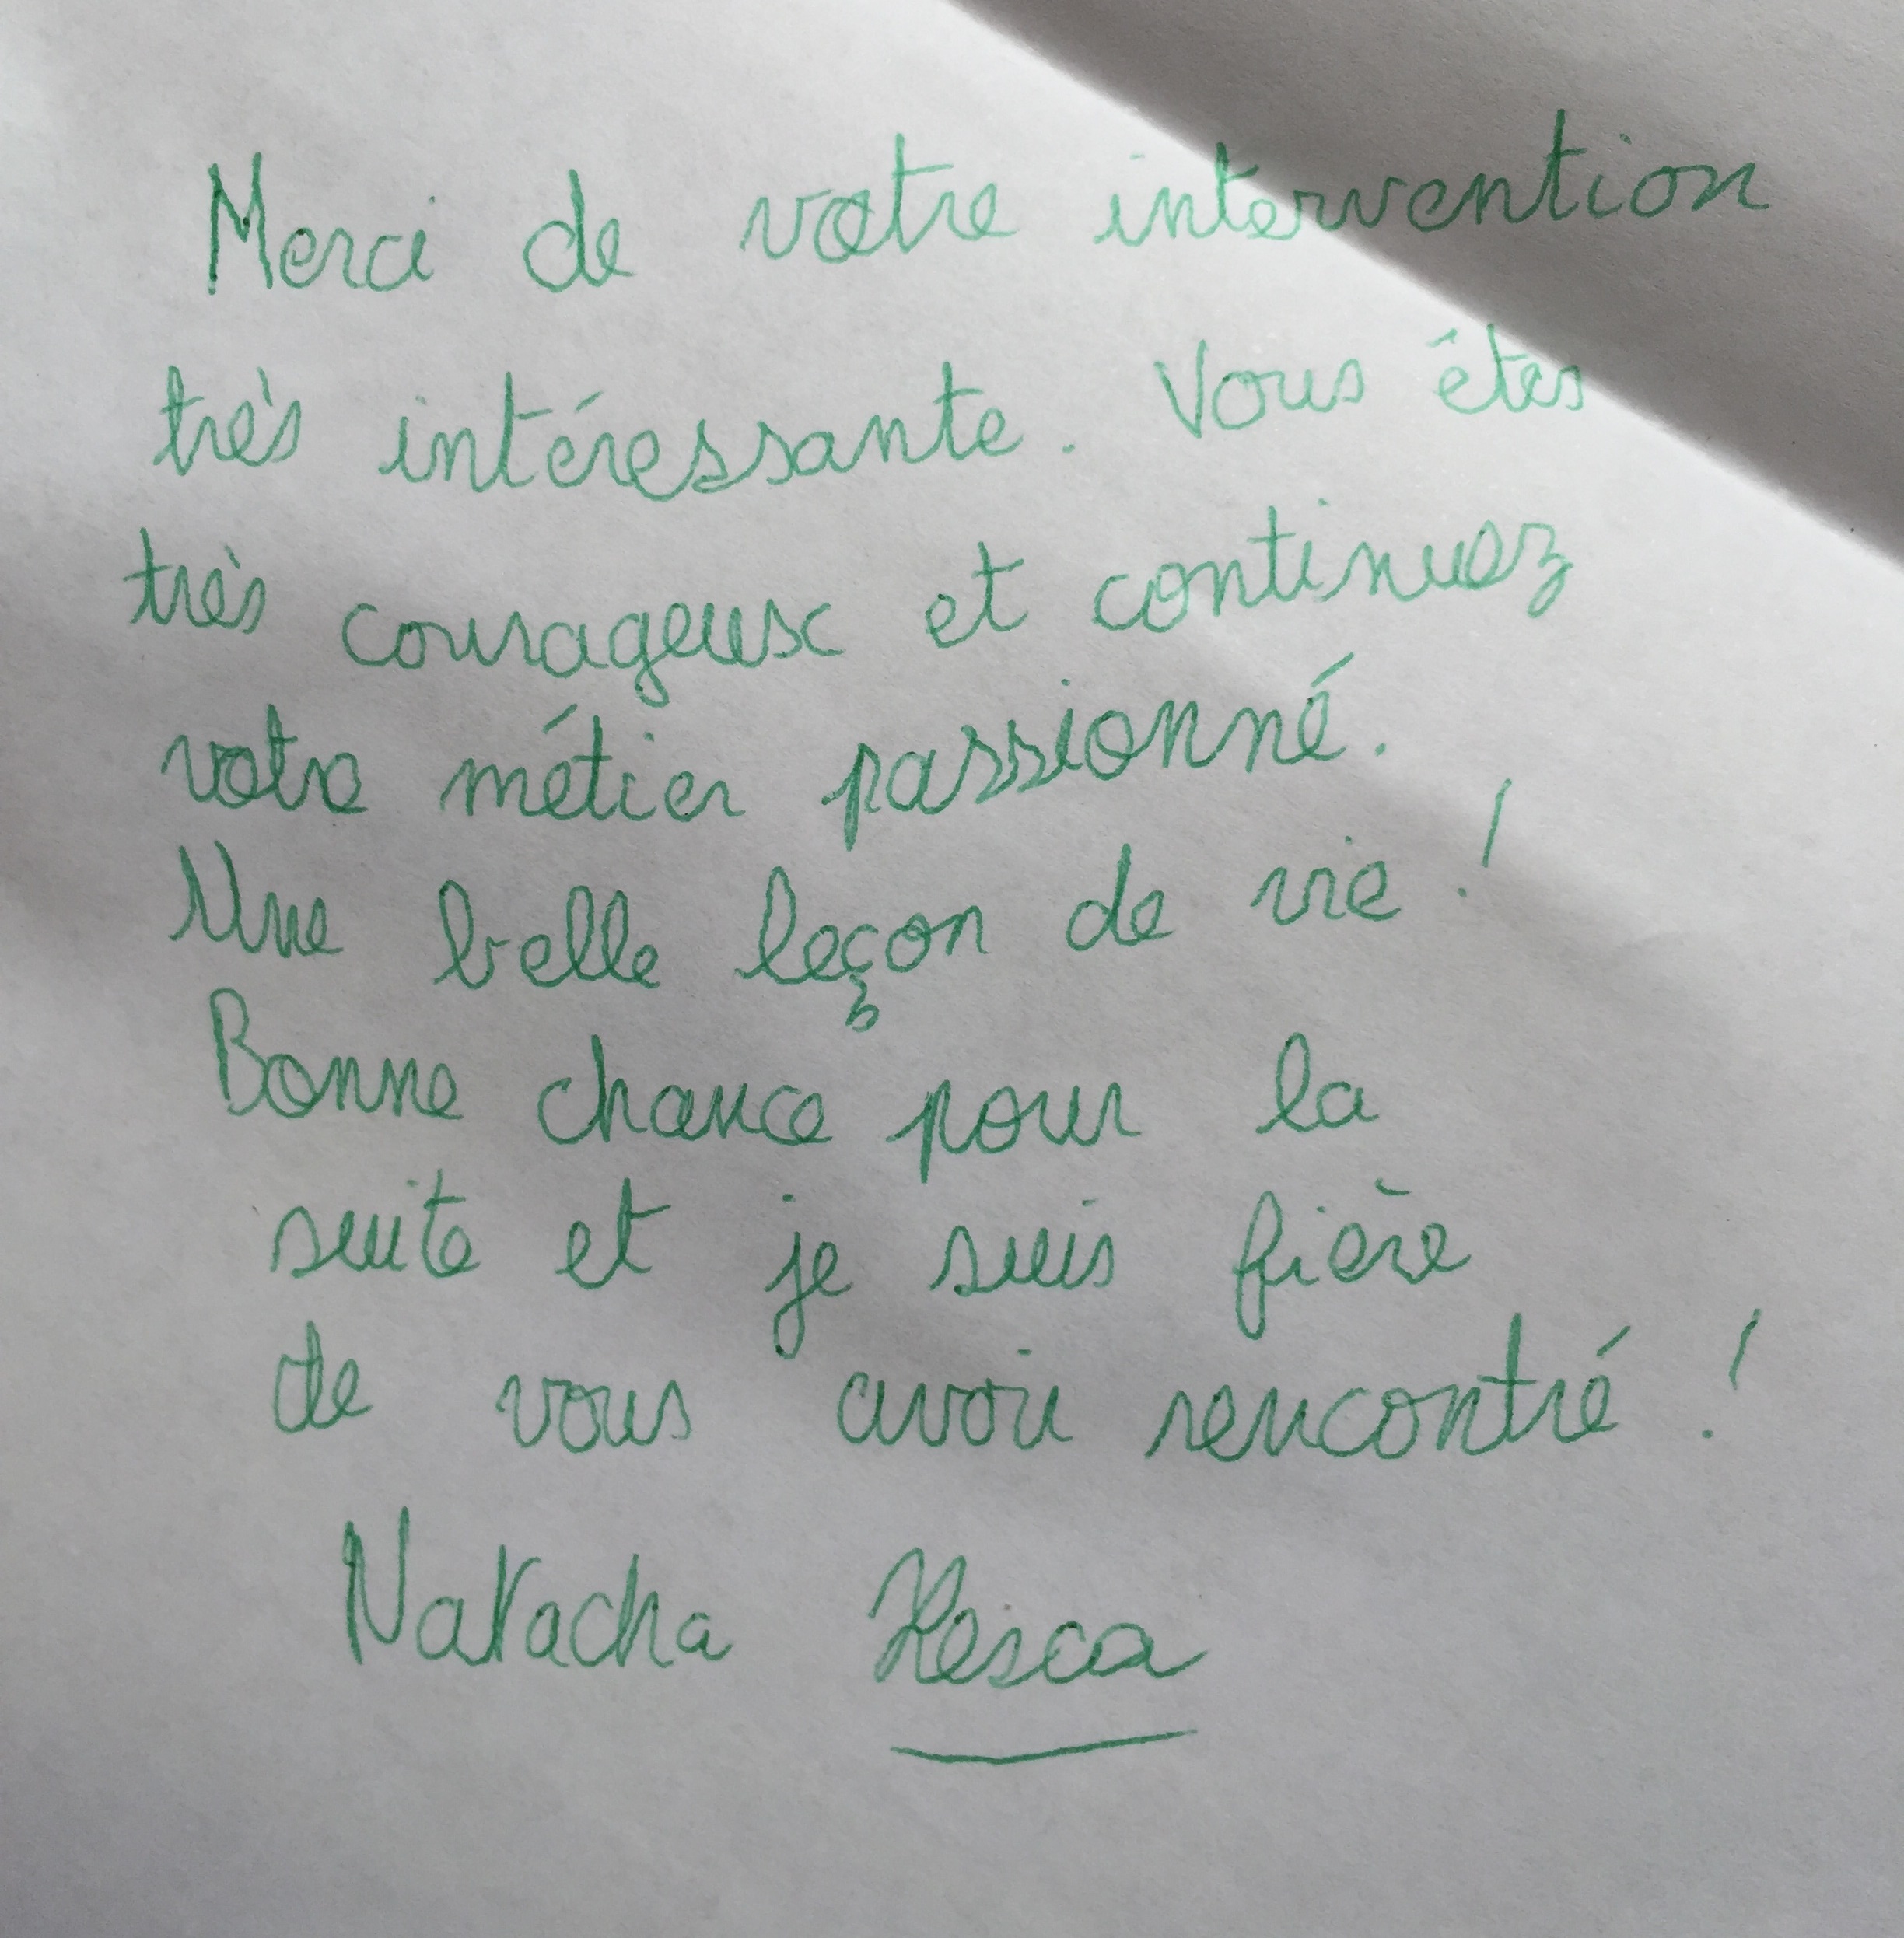 Merci de votre intervention
très intéressante. Vous êtes
très courageux et continuez
votre métier passionné.
Une belle leçon de vie !
Bonne chance pour la
suite et je suis fière
de vous avoir rencontré !
Natacha